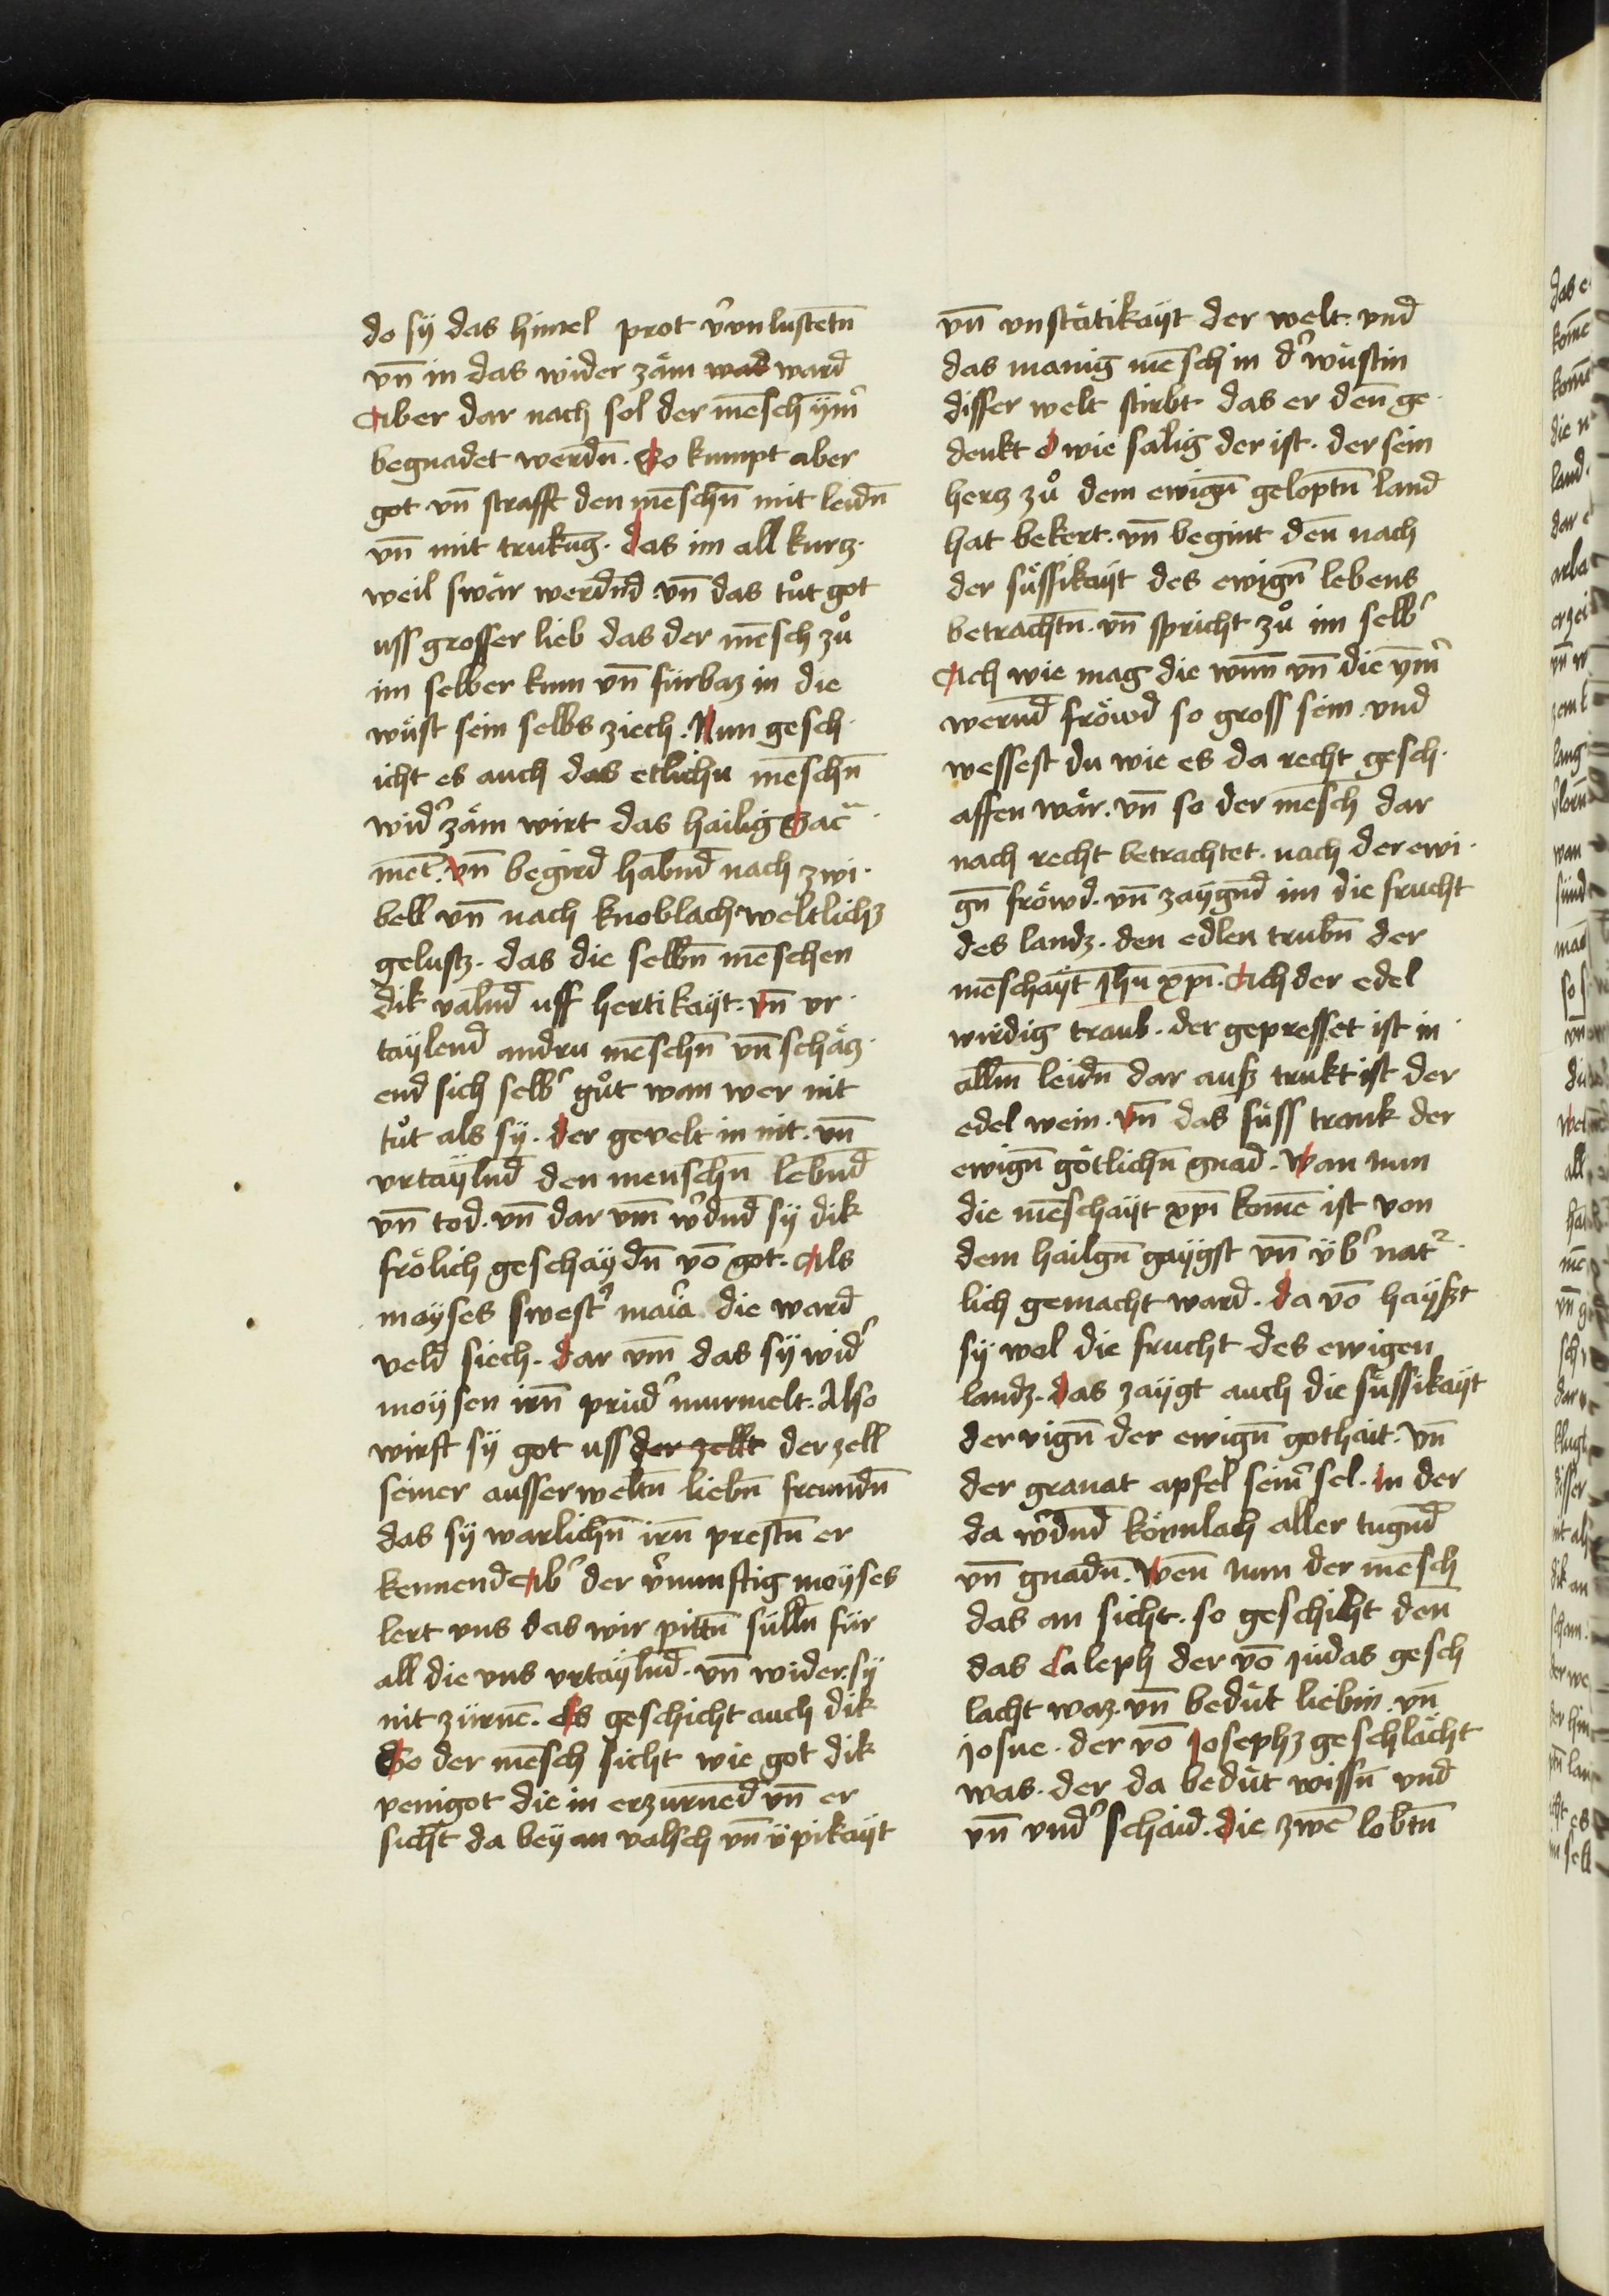 do sÿ das himel prot v̾unlustetn̄
vn̄ in das wider zäm wad ward
Aber dar nach sol der mēsch ÿm̾
begnadet werdn̄. So kumpt aber
got vn̄ strafft den mēschn̄ mit leidn̄
vn̄ mit trukūg. das im all kurcz·
weil swär werdn̄d vn̄ das tůt got
uss grosser lieb das der mēsch zů
im selber kum vn̄ fürbaz in die
wüst sein selbs ziech. Nun gesch·
icht es auch das etlichn mēschn̄
wid̾ zäm wirt das hailig Sac̄·
mēt. vn̄ begird habn̄d nach zwi·
bell vn̄ nach knoblach weltlichz
gelustz. das die selbn̄ mēschen
dik valn̄d uff hertikaÿt. vn̄ vr·
taÿlend andru mēschn̄ vn̄ schäcz·
end sich selb̾ gůt wan wer nit
tůt als sÿ. der gevelt in nit. vn̄
vrtaÿln̄d den menschn̄ lebn̄d
vn̄ tod. vn̄ dar vm̄ w̾dn̄d sÿ dik
frölich geschaÿdn̄ vō got. Als
moÿses swest̾ mar̾ia die ward
veld siech. dar vm̄ das sÿ wid̾
moÿsen irn̄ prud̾ murmelt. Also
wirft sÿ got uss der zellt der zell
seiner ausserweltn̄ liebn̄ freundn̄
das sÿ warlichn̄ irn̄ prestn̄ er
kennend Ab̾ der v̾nunftig moÿses
lert vns das wir pittn̄ sülln̄ für
all die vns vrtaÿln̄d. vn̄ wider sÿ
nit zürnē. Es geschicht auch dik
So der mēsch sicht wie got dik
penigot die in erzurnēd vn̄ er
sicht da beÿ an valsch vn̄ üpikaÿt
vn̄ vnstätikaÿt der welt. vnd
das manig mēsch in d̾ wüstin
disser welt stirbt das er den̄ ge·
denkt O wie salig der ist. der sein
hercz zů dem ewign̄ geloptn̄ land
hat bekert. vn̄ begint den̄ nach
der süssikaÿt des ewign̄ lebens
betrachtn̄. vn̄ spricht zů im selb̾
Ach wie mag die wun̄ vn̄ die ÿm̾
wernd̄ fröwd so gross sein. vnd
wessest du wie es da recht gesch·
affen wär. vn̄ so der mēsch dar
nach recht betrachtet. nach der ewi·
gn̄ fröwd. vn̄ zaÿgn̄d im die frucht
des landz. den edlen trubn̄ der
mēschaÿt Jhū xpī. Ach der edel
wirdig traub. der gepresset ist in·
alln̄ leidn̄ dar ausz trukt ist der
edel wein. vn̄ das süss trank der
ewign̄ götlichn̄ gnad. Wan nun
die mēschaÿt xpī komē ist von
dem hailgn̄ gaÿgst vn̄ üb̾ nat²·
lich gemacht ward. da vō haÿszt
sÿ wol die frucht des ewigen
landz. das zaÿgt auch die süssikaÿt
der vign̄ der ewign̄ gothait. vn̄
der granat apfel sein̾ sel. in der
da w̾dn̄d körnlach aller tugn̄d
vn̄ gnadn̄. Wen̄ nun der mēsch
das an sicht. so geschicht den
das Caleph der vō judas gesch
lacht waz. vn̄ bedüt liebin. vn̄
josue. der vō josephz geschlächt
was. der da bedüt wissn̄ vnd
vn̄ vnd̾schaid. die zwē lobtn̄